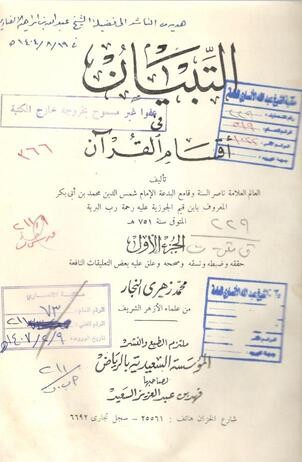 هدية من الناشر إلى فضيلة الشيخ عبد الله بن إبراهيم
التِّبيَان
عفوا غير مسموح بخروجه خارج المكتبة
في
أقسام القرآن
٣٦٦
تأليف
العالم العلامة ناصر السنة وقامع البدعة الإمام شمس الدين محمد بن أبي بكر
المعروف بابن قيم الجوزية عليه رحمة رب البرية
المتوفى سنة ٧٥١ هـ
٢٢٩
الجزء الأول
حققه وضبطه ونسقه وصححه وعلق عليه بعض التعليقات النافعة
محمد زهري النجار
من علماء الأزهر الشريف
ملتزم الطبع والنشر
المؤسسة السعيدية بالرياض
لصاحبها
فهد بن عبد العزيز السعيد
شارع الخزان هاتف : ٢٥٥٦١ - سجل تجارى ٦٦٩٢